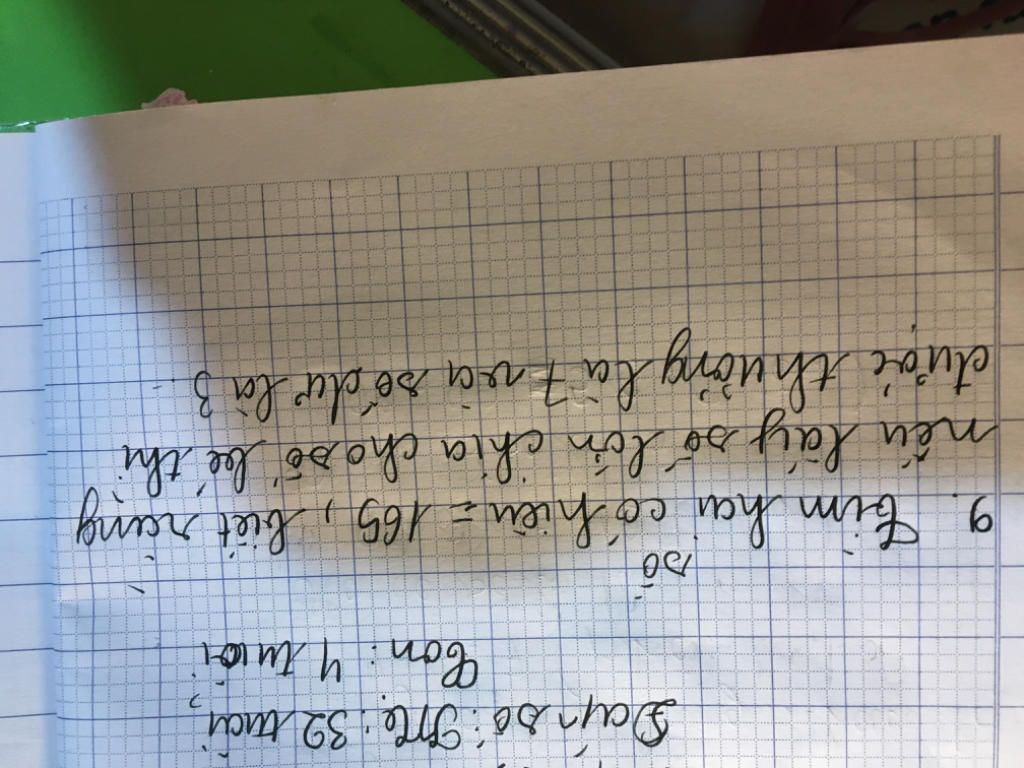 Đáp số: Mẹ: 32 tuổi
Con: 4 tuổi
số
9. Tìm hai có hiệu = 165, biết rằng
nếu lấy số lớn chia cho số bé thì
được thương là 7 và số dư là 3.